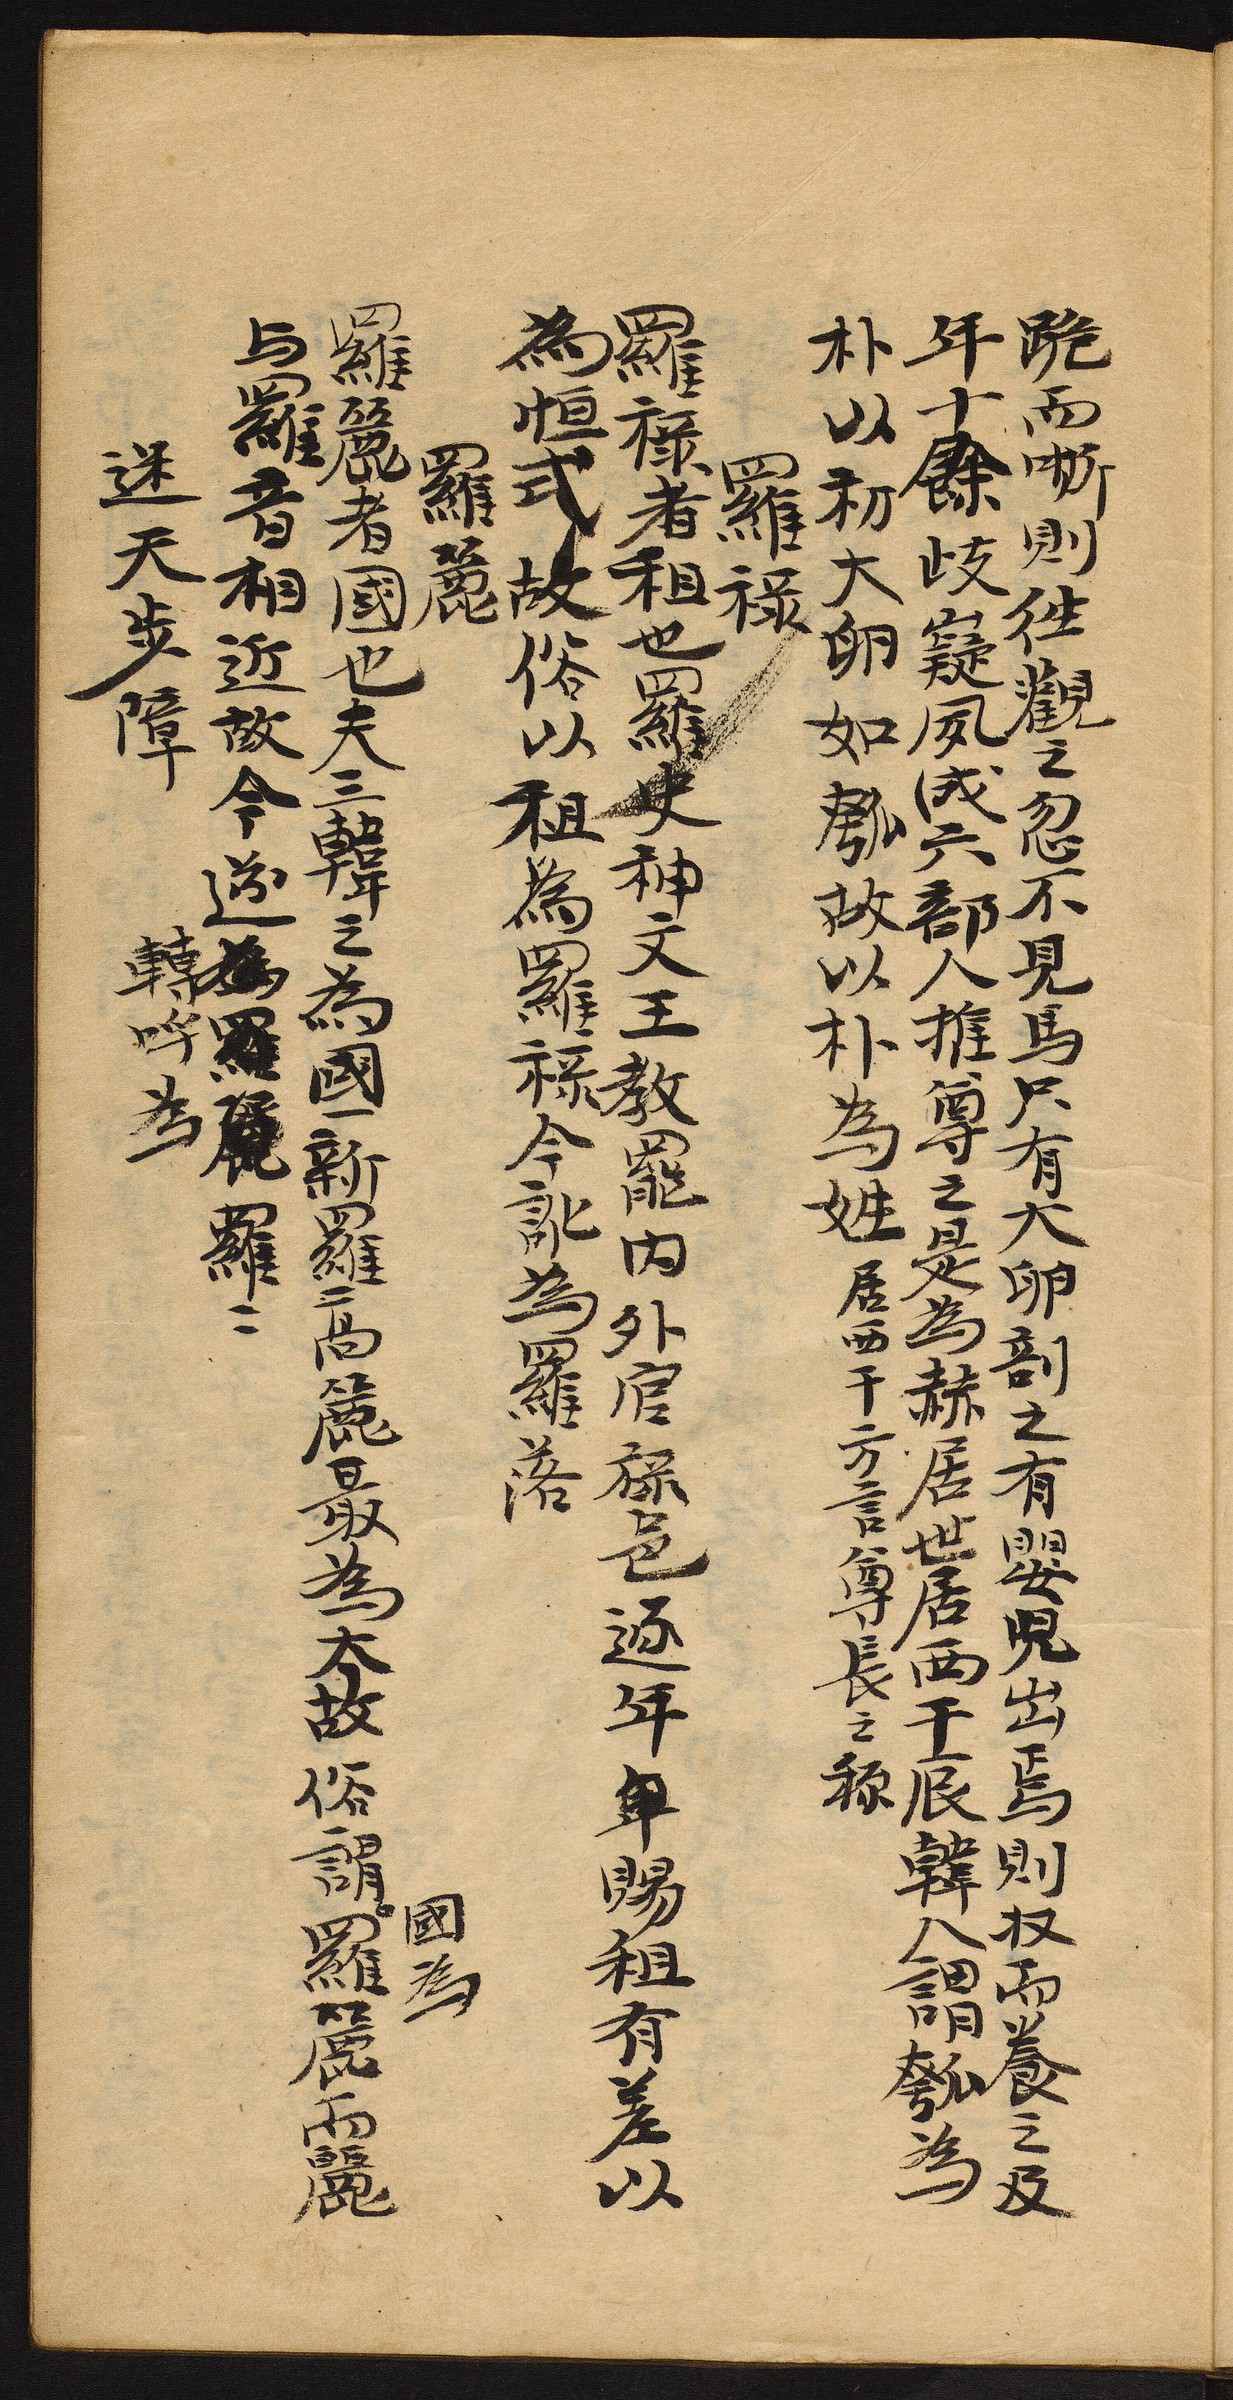 跪而嘶則徃觀之忽不見馬只有大卵剖之有嬰児出焉則収而養之及
年十餘歧嶷夙成六部人推尊之是為赫居世居西干辰韓人謂瓠為
朴以初大卵如瓠故以朴為姓 居西干方言尊長之稱
羅祿
羅祿者租也羅史神文王教罷內外官祿邑逐年賜租有差以
為恒式故俗以租為羅祿今訛為羅落
羅麗
國為
羅麗者國也夫三韓之為國一新羅二高麗最為大故俗謂羅麗而麗
与羅音相近故今遂羅二
轉呼為
迷天步障